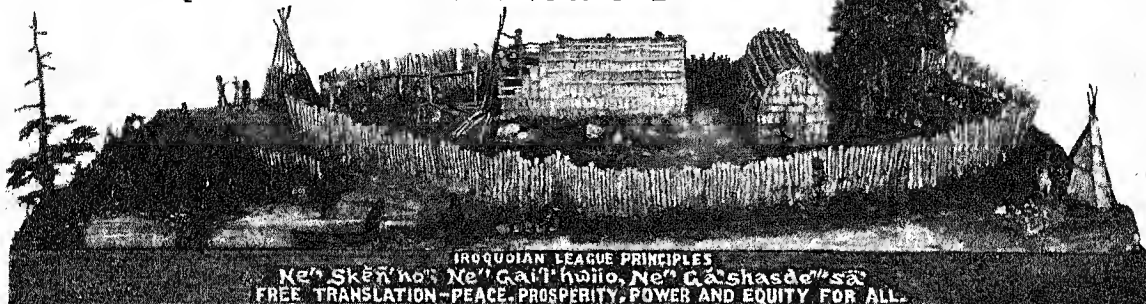 IROQUOIAN LEAGUE PRINCIPLES
Neʺ Skĕñʹnoⁿ, Neʺ Gaiʹiʹhwiio, Neʺ Găʹshasdeⁿʺsăʹ
FREE TRANSLATION-PEACE, PROSPERITY, POWER AND EQUITY FOR ALL.